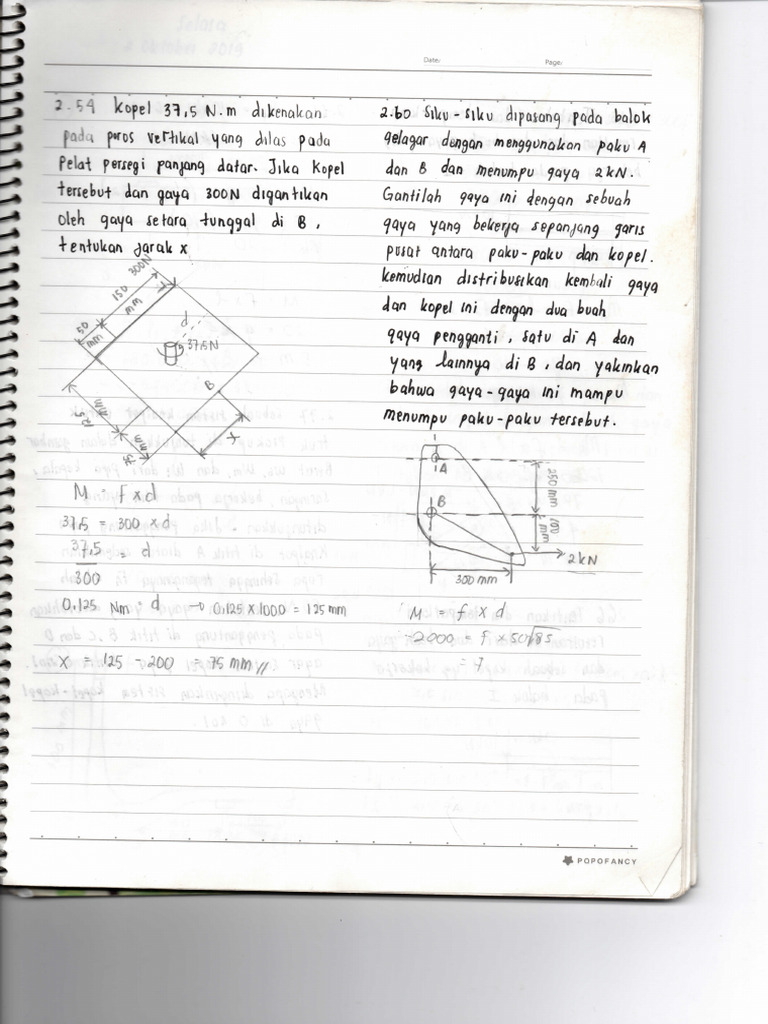 Date:
Page:
2.54 kopel 37,5 N.m dikenakan
pada poros vertikal yang dilas pada
Pelat persegi panjang datar. Jika kopel
tersebut dan gaya 300N digantikan
oleh gaya setara tunggal di B,
tentukan jarak x
300N
150
mm
50
mm
d
37,5N
B
mm
mm
x
M = f x d
37,5 = 300 x d
37,5 = d
300
0,125 Nm d → 0,125 x 1000 = 125 mm
x = 125 - 200 = 75 mm //
2.60 Siku-siku dipasang pada balok
gelagar dengan menggunakan paku A
dan B dan menumpu gaya 2kN.
Gantilah gaya ini dengan sebuah
gaya yang bekerja sepanjang garis
pusat antara paku-paku dan kopel.
kemudian distribusikan kembali gaya
dan kopel ini dengan dua buah
gaya pengganti, satu di A dan
yang lainnya di B, dan yakinkan
bahwa gaya-gaya ini mampu
menumpu paku-paku tersebut.
A
250 mm
B
100
mm
2kN
300 mm
M = f x d
-2000 = f x 50√85
= 7
POPOFANCY